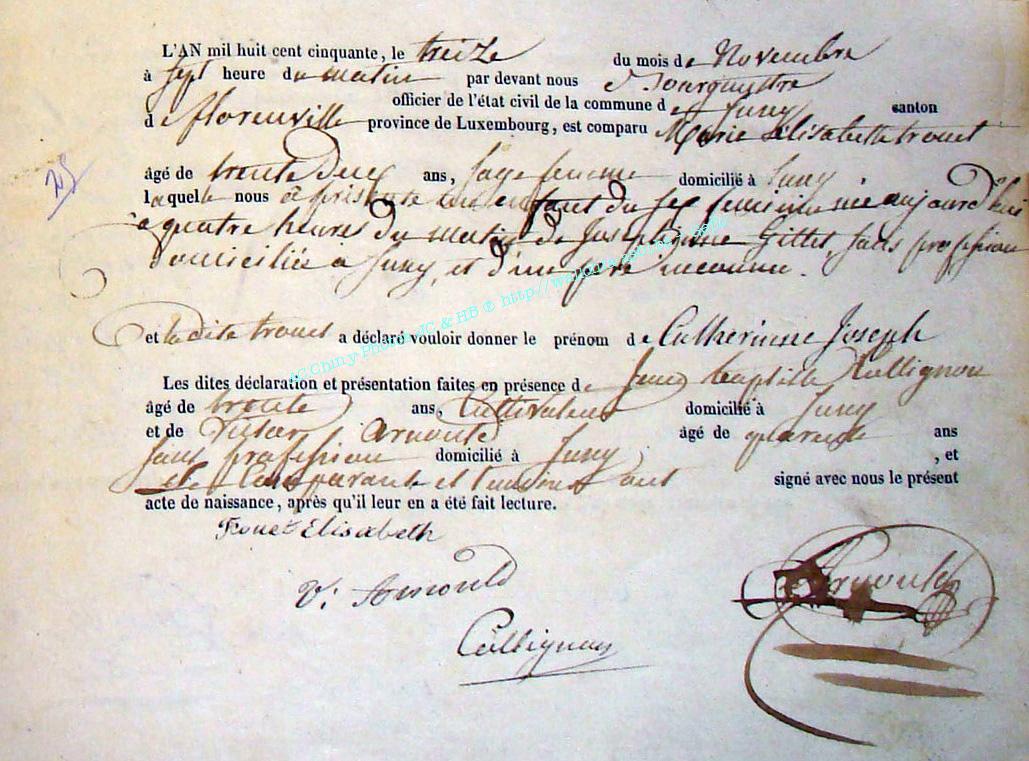 L'AN mil huit cent cinquante, le treize du mois de Novembre
à sept heure du matin par devant nous Bourguestre
officier de l'état civil de la commune de Juny canton
de florenville province de Luxembourg, est comparu Marie Elisabeth trouet
25
âgé de trente deux ans, sage femme domicilié à Juny
laquelle nous à présenté un enfant du sex feminin née aujourd'hui
à quatre heures du matin de Josephinne Gillet, sans profession
domiciliée à Juny, et d'un père inconnu.
et ladite trouet a déclaré vouloir donner le prénom de Catherinne Joseph
Les dites déclaration et présentation faites en présence de Jean baptiste Collignon
âgé de trente ans, Cultivateur domicilié à Juny
et de Victor Arnould âgé de quarente ans
sans profession domicilié à Juny, et
Comparante et temoins ont signé avec nous le présent
acte de naissance, après qu'il leur en a été fait lecture.
Trouet Elisabeth
V: Arnould
Arnould
Collignon
AC Chiny Photos JC & HB ® http://